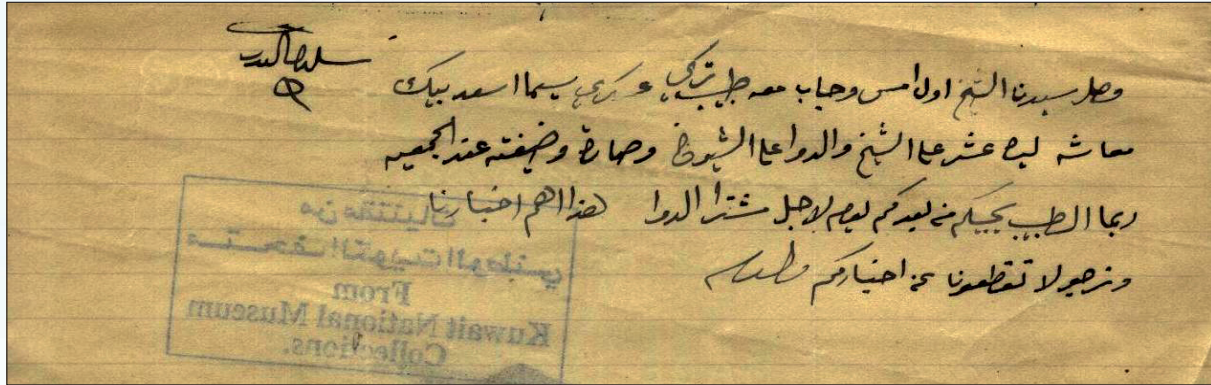 وصل سيدنا الشيخ اول امس وجاب معه طبيب تركي عسكري يسما اسعد بيك
معاشه ليره عشر على الشيخ والدوا على الشيوخ وصارة وضيفته عند الجمعيه
ربما الطبيب يجيكم من بعدكم يوم لاجل مشترا الدوا هذا اهم اخبارنا
ونرجو لا تقطعونا من اخباركم
من مقتنيات
متحف الكويت الوطني
From
Kuwait National Museum
Collections.